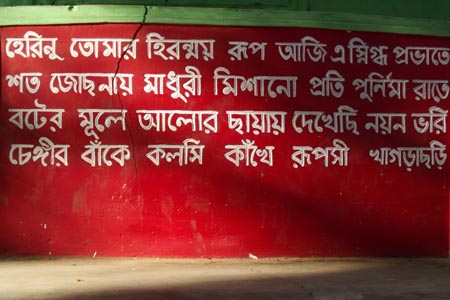 হেরিনু তোমার হিরন্ময় রূপ আজি এ স্নিগ্ধ প্রভাতে
শত জোছনায় মাধুরী মিশানো প্রতি পুর্নিমা রাতে
বটের মূলে আলোর ছায়ায় দেখেছি নয়ন ভরি
চেঙ্গীর বাঁকে কলসি কাঁখে রূপসী খাগড়াছড়ি